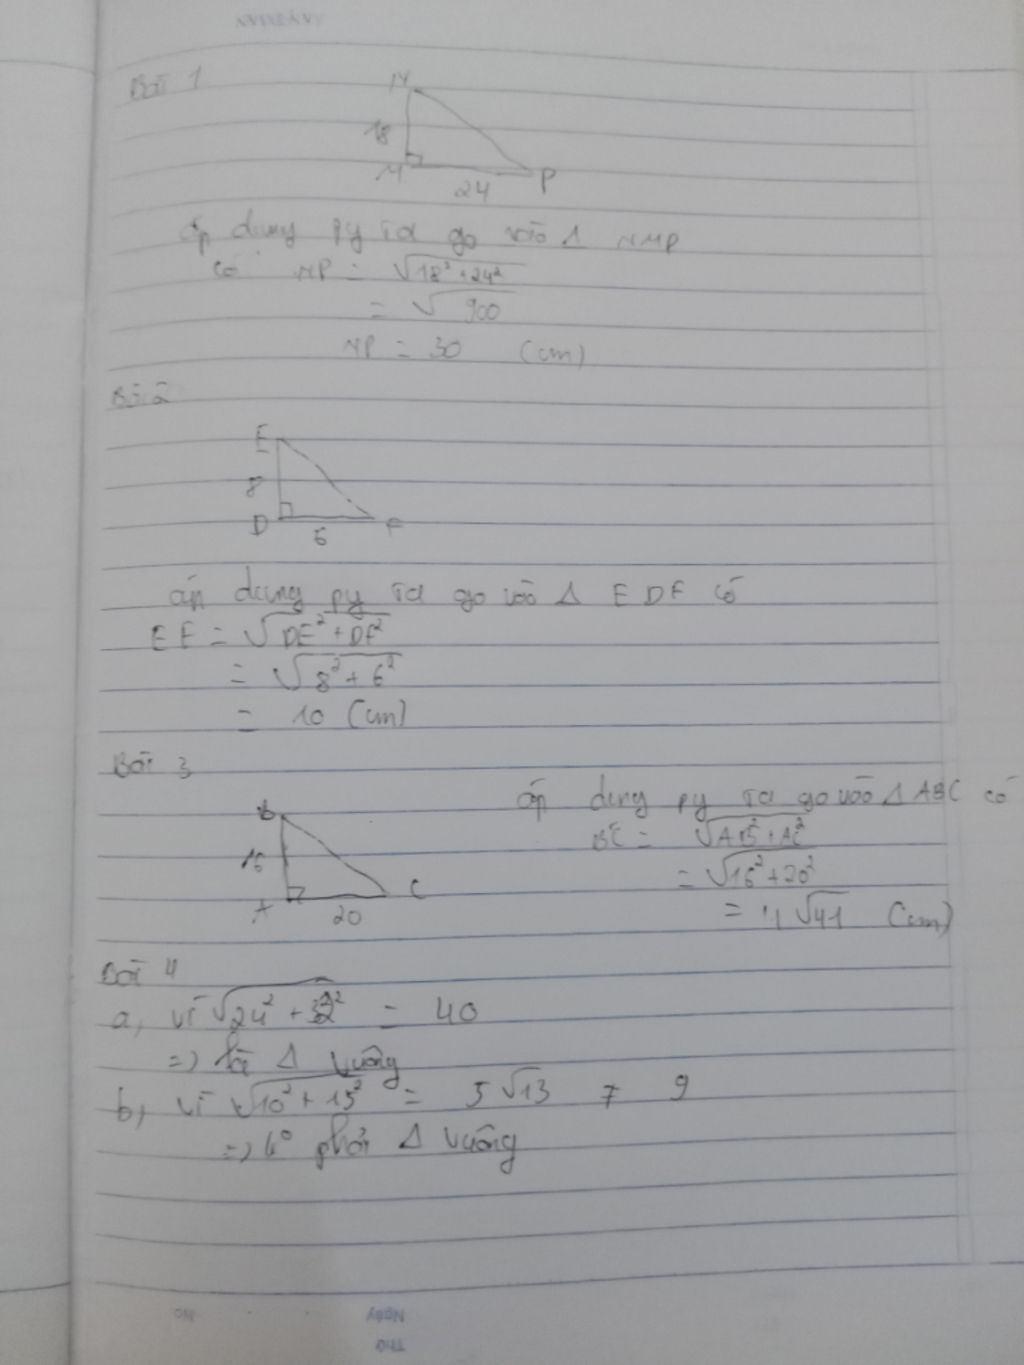 Bài 1
N
18
M
24
P
áp dụng py ta go vào Δ NMP
có NP = √18² + 24²
= √900
NP = 30 (cm)
Bài 2
E
8
D
6
F
áp dụng py ta go vào Δ EDF có
EF = √DE² + DF²
= √8² + 6²
= 10 (cm)
Bài 3
B
16
A
20
C
áp dụng py ta go vào Δ ABC có
BC = √AB² + AC²
= √16² + 20²
= 4√41 (cm)
Bài 4
a, vì √24² + 32² = 40
=> là Δ vuông
b, vì √10² + 15² = 5√13 ≠ 9
=> k° phải Δ vuông
No
Ngày
Thứ